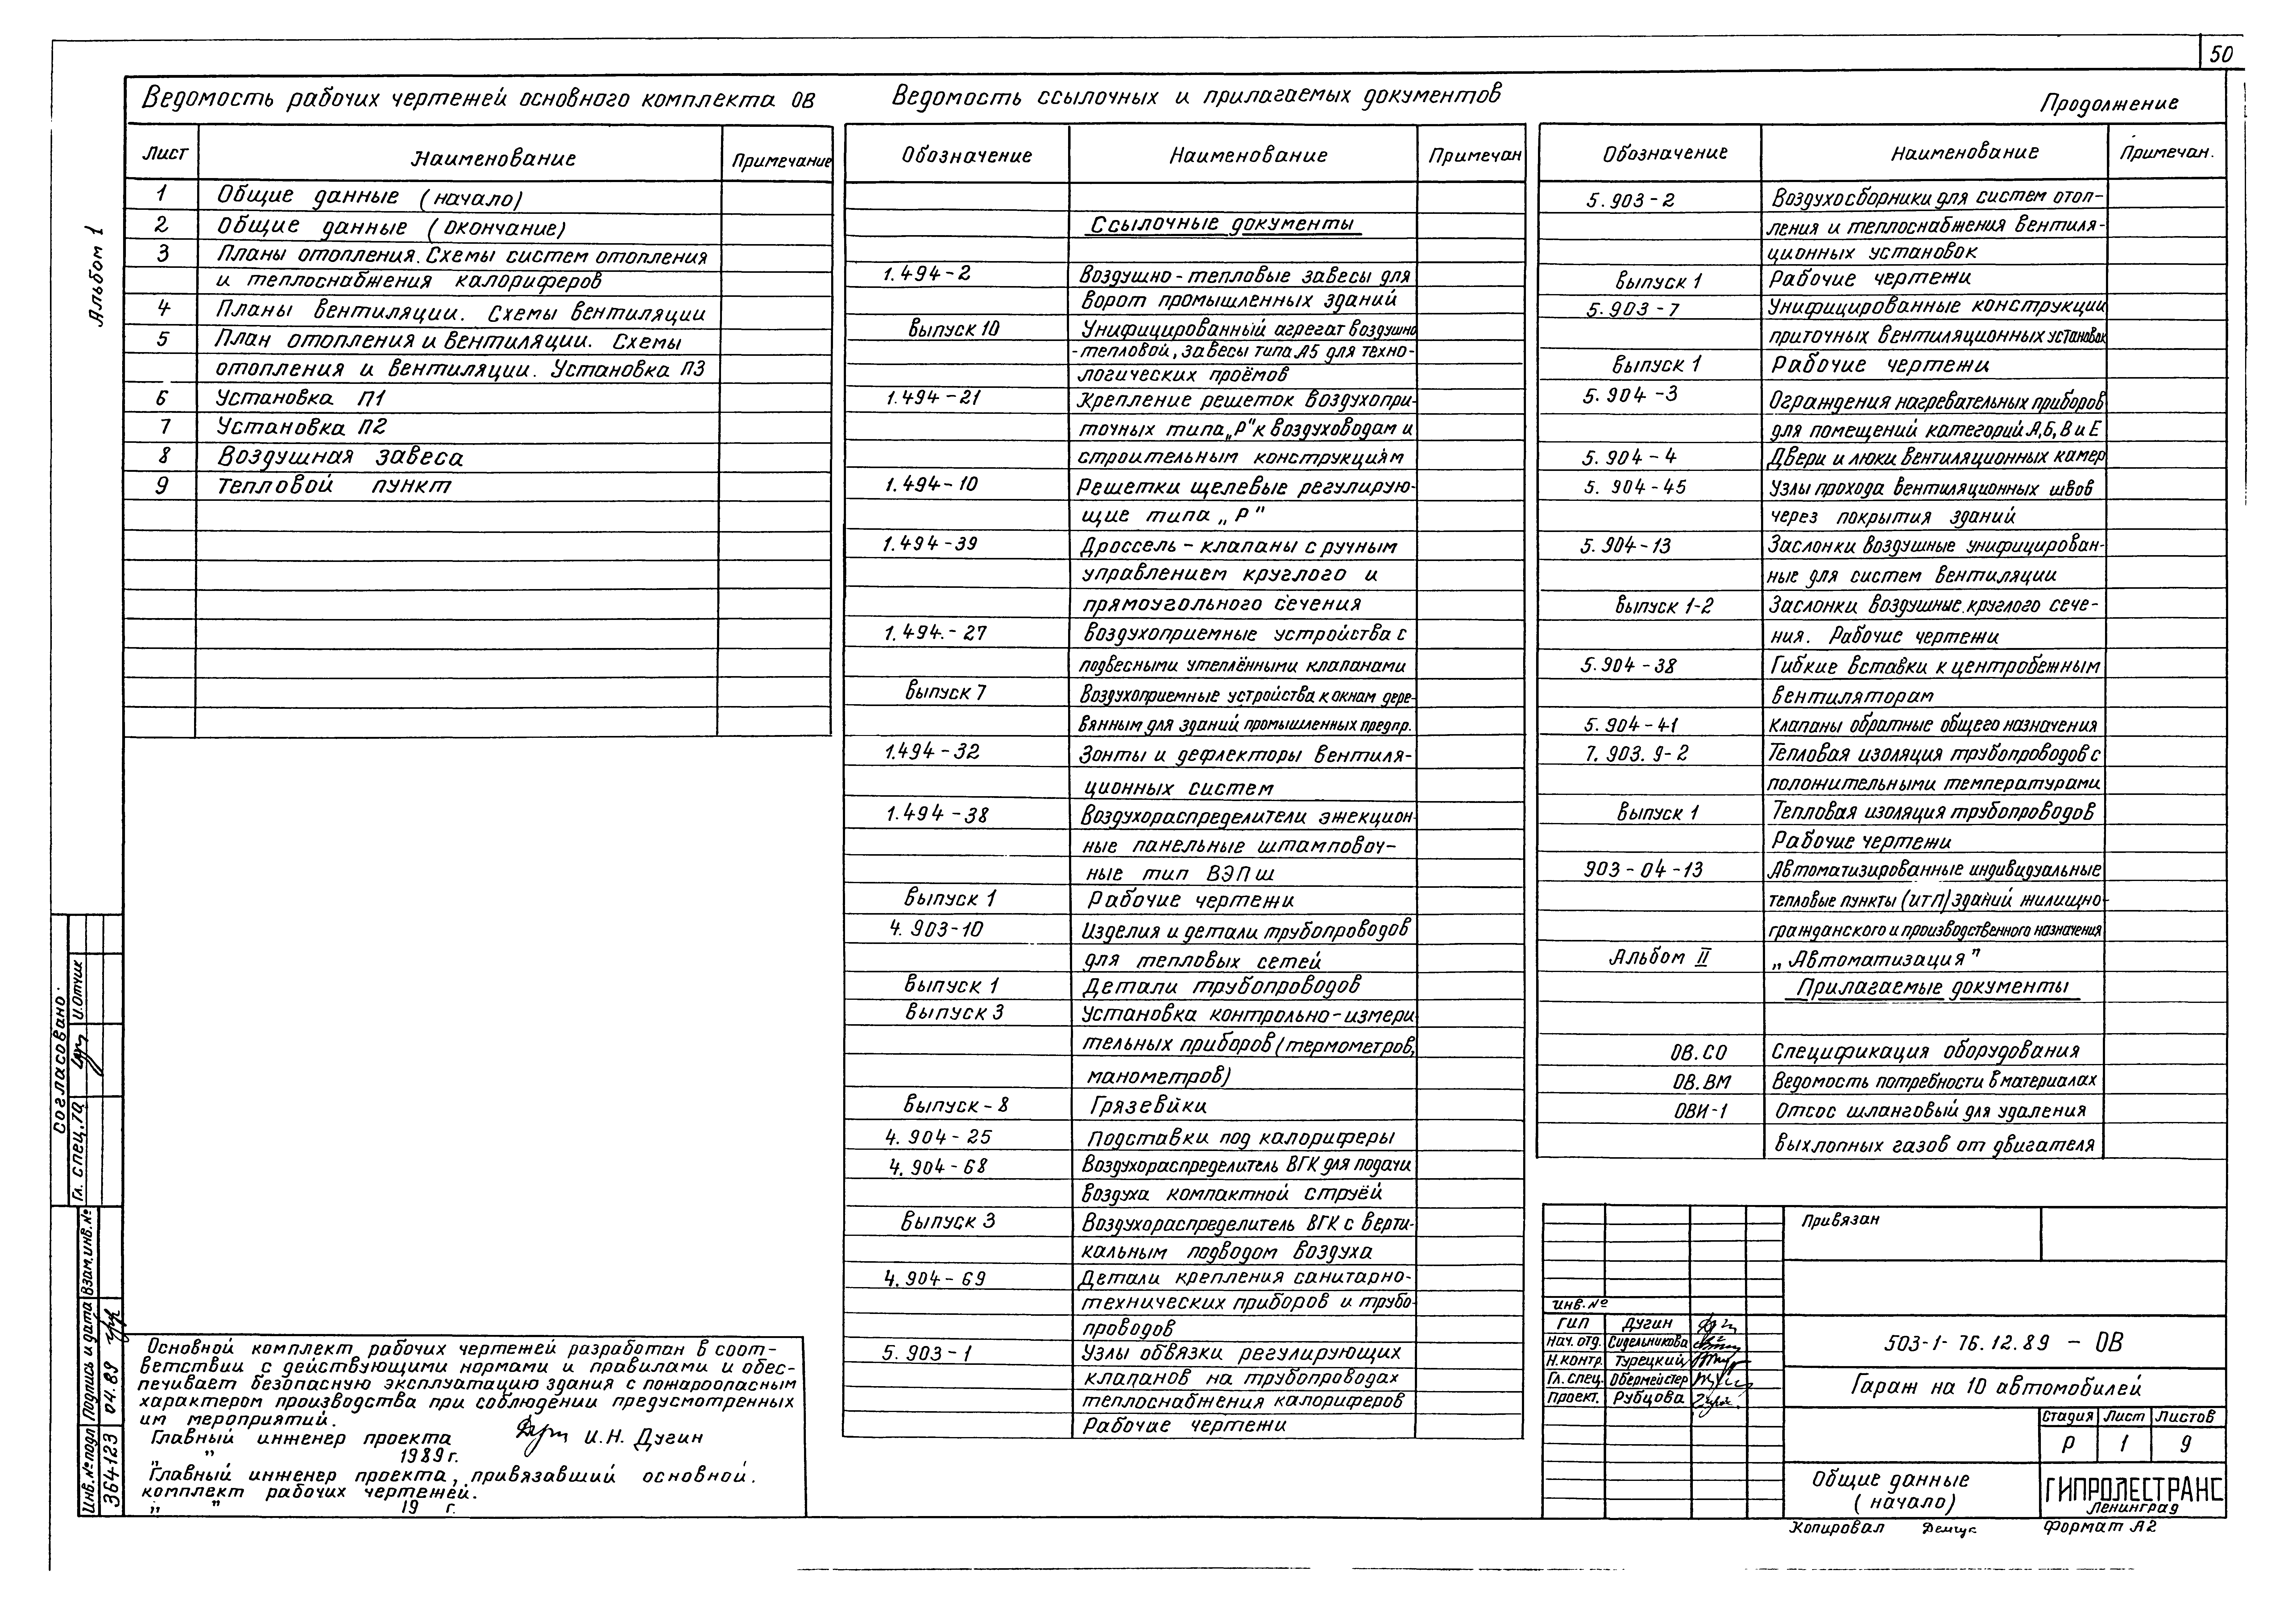 50
Альбом 1
Ведомость рабочих чертежей основного комплекта ОВ
Лист Наименование Примечание
1 Общие данные (начало)
2 Общие данные (окончание)
3 Планы отопления. Схемы систем отопления
и теплоснабжения калориферов
4 Планы вентиляции. Схемы вентиляции
5 План отопления и вентиляции. Схемы
отопления и вентиляции. Установка П3
6 Установка П1
7 Установка П2
8 Воздушная завеса
9 Тепловой пункт
Ведомость ссылочных и прилагаемых документов
Обозначение Наименование Примечан
Ссылочные документы
1.494-2 Воздушно-тепловые завесы для
ворот промышленных зданий
выпуск 10 Унифицированный агрегат воздушно
-тепловой, завесы типа А5 для техно-
логических проёмов
1.494-21 Крепление решеток воздухопри-
точных типа „Р" к воздуховодам и
строительным конструкциям
1.494-10 Решетки щелевые регулирую-
щие типа „Р"
1.494-39 Дроссель-клапаны с ручным
управлением круглого и
прямоугольного сечения
1.494.-27 Воздухоприемные устройства с
подвесными утеплёнными клапанами
выпуск 7 Воздухоприемные устройства к окнам дере-
вянным для зданий промышленных предпр.
1.494-32 Зонты и дефлекторы вентиля-
ционных систем
1.494-38 Воздухораспределители эжекцион-
ные панельные штамповоч-
ные тип ВЭПш
выпуск 1 Рабочие чертежи
4.903-10 Изделия и детали трубопроводов
для тепловых сетей
выпуск 1 Детали трубопроводов
выпуск 3 Установка контрольно-измери
тельных приборов (термометров,
манометров)
выпуск-8 Грязевики
4.904-25 Подставки под калориферы
4.904-68 Воздухораспределитель ВГК для подачи
воздуха компактной струёй
выпуск 3 Воздухораспределитель ВГК с верти-
кальным подводом воздуха
4.904-69 Детали крепления санитарно-
технических приборов и трубо-
проводов
5.903-1 Узлы обвязки регулирующих
клапанов на трубопроводах
теплоснабжения калориферов
Рабочие чертежи
Продолжение
Обозначение Наименование Примечан.
5.903-2 Воздухосборники для систем отоп-
ления и теплоснабжения вентиля-
ционных установок
выпуск 1 Рабочие чертежи
5.903-7 Унифицированные конструкции
приточных вентиляционных установок
выпуск 1 Рабочие чертежи
5.904-3 Ограждения нагревательных приборов
для помещений категорий А,Б,В и Е
5.904-4 Двери и люки вентиляционных камер
5.904-45 Узлы прохода вентиляционных швов
через покрытия зданий
5.904-13 Заслонки воздушные унифицирован-
ные для систем вентиляции
выпуск 1-2 Заслонки воздушные круглого сече-
ния. Рабочие чертежи
5.904-38 Гибкие вставки к центробежным
вентиляторам
5.904-41 Клапаны обратные общего назначения
7.903.9-2 Тепловая изоляция трубопроводов с
положительными температурами
выпуск 1 Тепловая изоляция трубопроводов
Рабочие чертежи
903-04-13 Автоматизированные индивидуальные
тепловые пункты (ИТП) зданий жилищно-
гражданского и производственного назначения
Альбом II „Автоматизация"
Прилагаемые документы
ОВ.СО Спецификация оборудования
ОВ.ВМ Ведомость потребности в материалах
ОВИ-1 Отсос шланговый для удаления
выхлопных газов от двигателя
Основной комплект рабочих чертежей разработан в соот-
ветствии с действующими нормами и правилами и обес-
печивает безопасную эксплуатацию здания с пожароопасным
характером производства при соблюдении предусмотренных
им мероприятий.
Главный инженер проекта И.Н. Дугин
„ " 1989г.
Главный инженер проекта, привязавший основной.
комплект рабочих чертежей.
„ " 19 г.
Согласовано.
Гл. спец. ТА И.Отчик
Инв.№подл Подпись и дата Взам.инв.№
364-123 04.89
Привязан
инв.№
ГИП Дугин
Нач.отд. Сидельникова
Н.контр. Турецкий
Гл.спец. Обермейстер
Проект. Рубцова
503-1-76.12.89 - ОВ
Гараж на 10 автомобилей
Стадия Лист Листов
Р 1 9
Общие данные
(начало)
ГИПРОЛЕСТРАНС
Ленинград
Копировал Формат А2